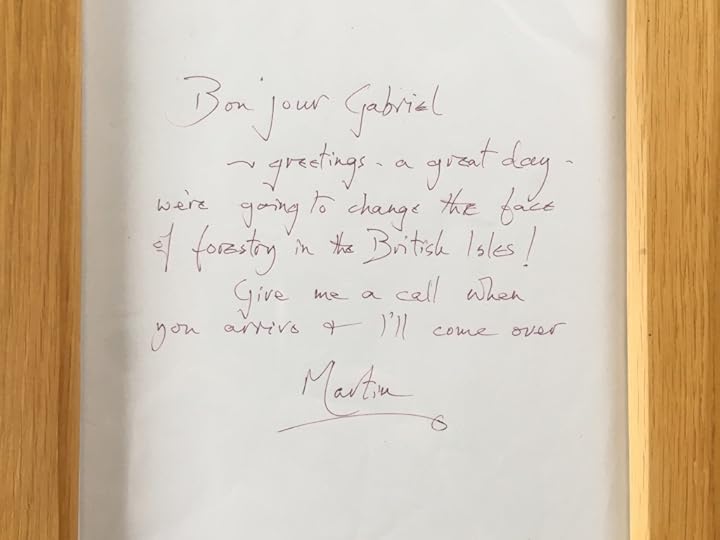 Bon'jour Gabriel
~ greetings - a great day -
we're going to change the face
of forestry in the British Isles!
Give me a call when
you arrive & I'll come over
Martin